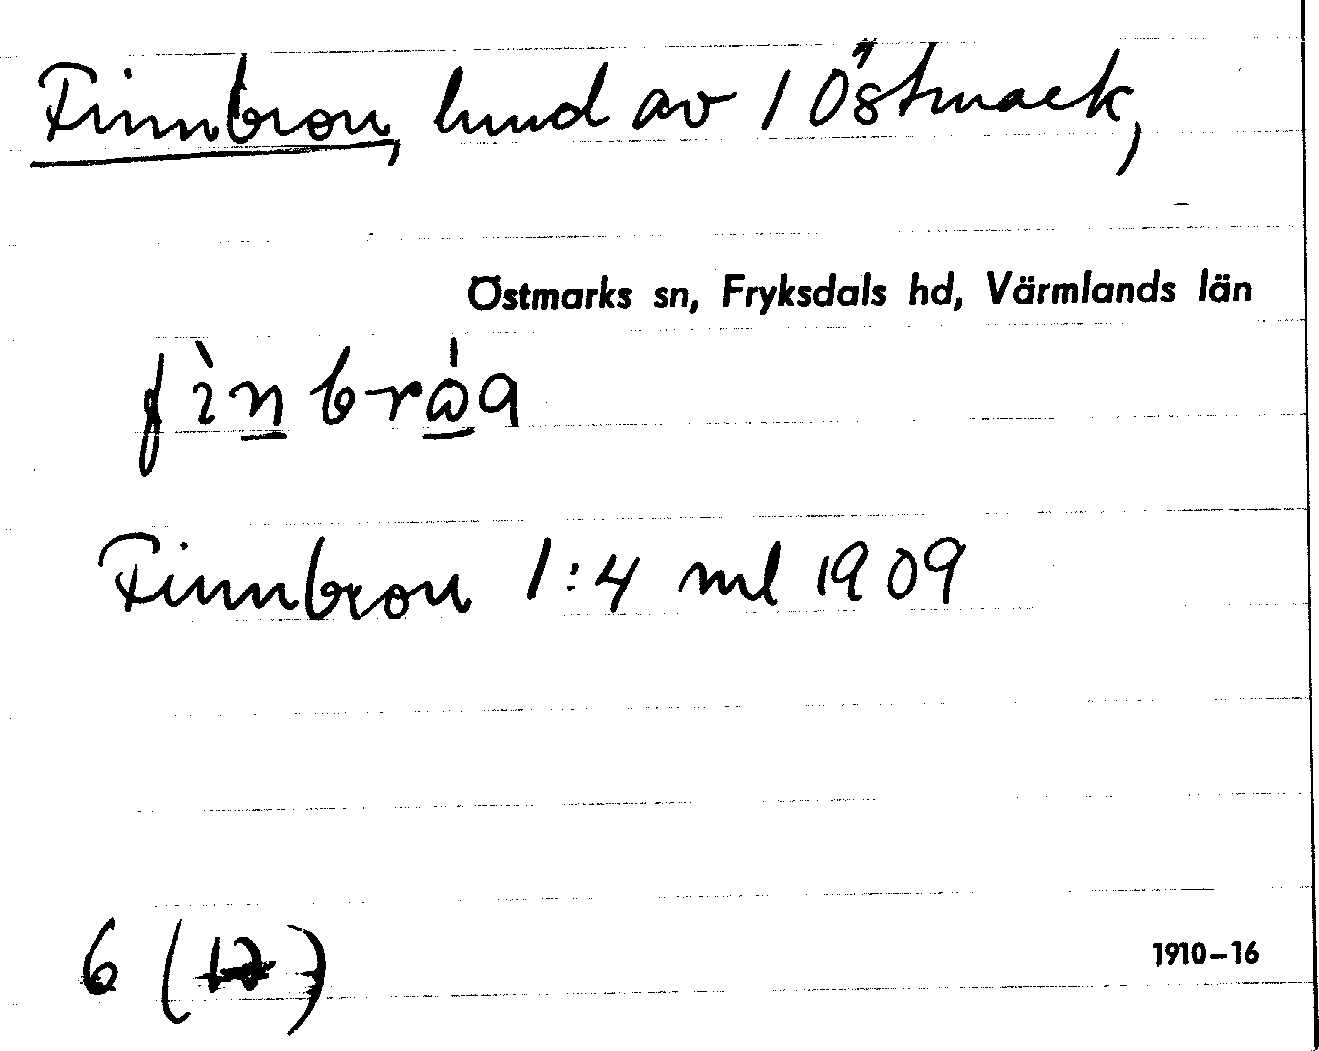 Finnbron, hmd av 1 Östmark,
Östmarks sn, Fryksdals hd, Värmlands län
fìnbrá̱a
Finnbron 1:4 ml 1909
6 (12)
1910–16